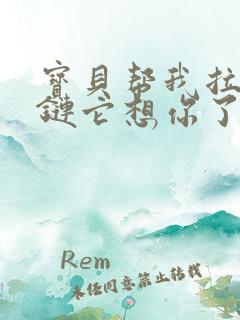 寳貝幇我拉
鏈它想你了
Rem
未经同意禁止转载